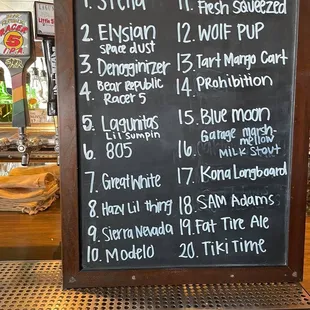 1. Stella
2. Elysian
space dust
3. Denogginizer
4. Bear Republic
Racer 5
5. Lagunitas
Lil Sumpin
6. 805
7. Great White
8. Hazy Lil thing
9. Sierra Nevada
10. Modelo
11.
Fresh Squeezed
12. WOLF PUP
13. Tart Mango Cart
14. Prohibition
15. Blue moon
16. Garage marsh-
mellow
Milk Stout
17. Kona Longboard
18. SAM Adams
19. Fat Tire Ale
20. Tiki Time
RACER
5
IPA